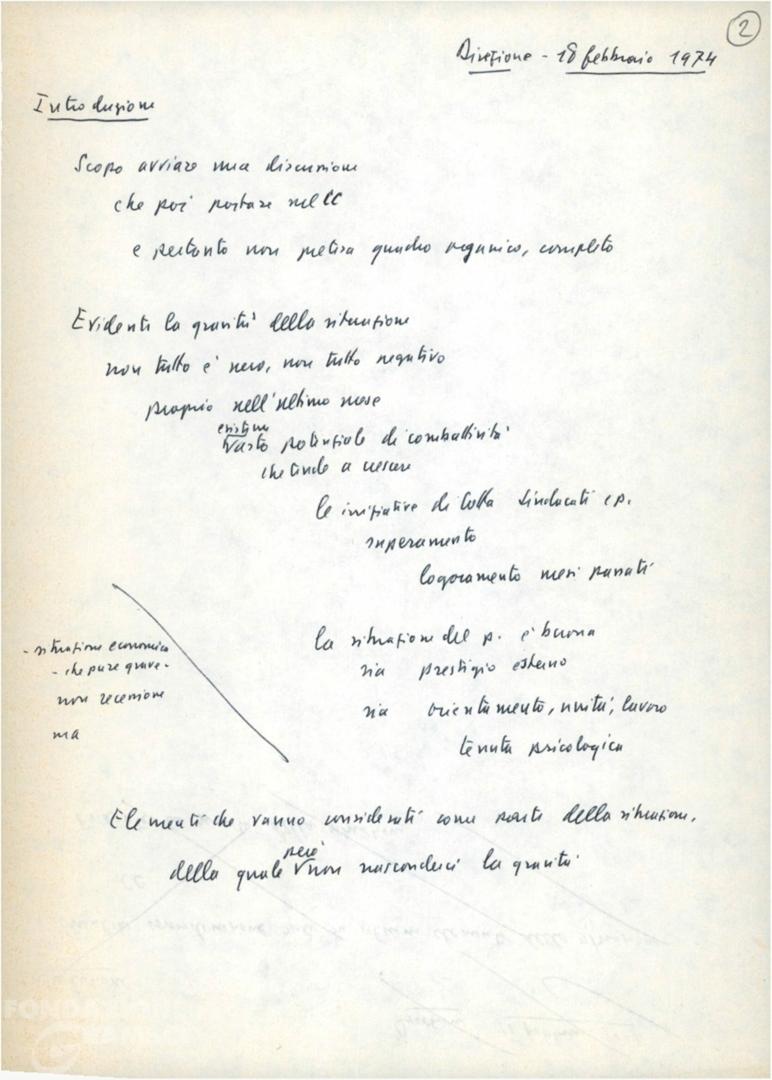 2
Direzione - 18 febbraio 1974
Introduzione
Scopo avviare una discussione
che poi portare nel CC
e pertanto non pretesa quadro organico, completo
Evidente la gravità della situazione
non tutto è nero, non tutto negativo
proprio nell'ultimo mese
esistono
vasto potenziale di combattività
che tende a crescere
le iniziative di lotta sindacati e p.
superamento
logoramento mesi passati
- situazione economica
- che pure grave -
non recessione
ma
la situazione del p. è buona
sia prestigio esterno
sia orientamento, unità, lavoro
tenuta psicologica
Elementi che vanno considerati come parte della situazione,
però
della quale non nasconderci la gravità
FONDAZIONE